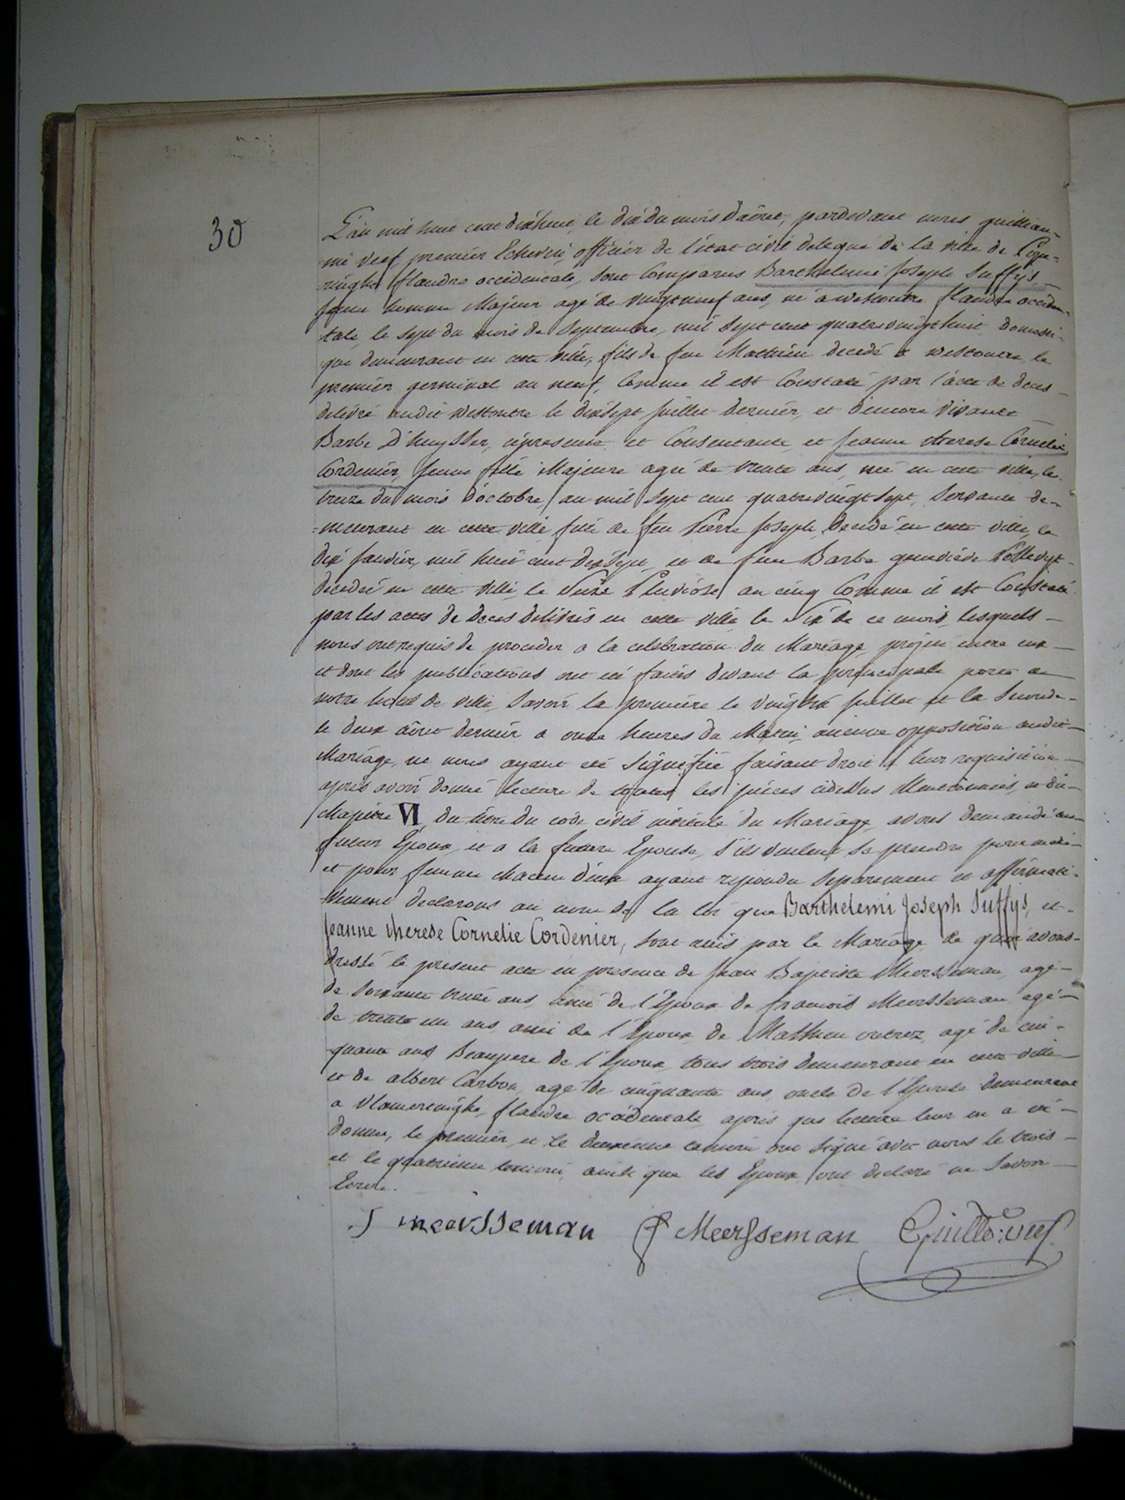 30
L'an mil huit cent dixhuit, le dix du mois d'aôut, pardevant nous guillian-
me veuf premier Echevin, officier de l'état civil delegué de la ville de Pope-
ringhe flandre occidentale, sont Comparus Barthelemi Joseph Suffys,
jeune homme Majeur agé de vingt neuf ans, né a westoutre flandre occiden-
tale le sept du mois de Septembre, mil sept cent quatrevingt huit domesti-
que demeurant en cette ville, fils de feu Mathieu decedé a westoutre le
premier germinal an neuf, Comme il est Constaté par l'acte de deces
delivré audit westoutre le dixsept juillet dernier, et d'encore vivante
Barbe D'huysser, cipresente et Consentante, et Jeanne therese Cornelie
Cordenier, jeune fille Majeure agée de trente ans, née en cette ville, le
treize du mois d'octobre, an mil sept cent quatrevingt sept, Servante de-
meurant en cette ville fille de feu Pierre Joseph, decedé en cette ville, le
dix janvier, mil huit cent dixsept, et de feue Barbe genevieve
decedée en cette ville, le Pluviose an cinq Comme il est Constaté
par les actes de deces delivrés en cette ville le six de ce mois, lesquels
nous ont requis de proceder a la celebration du Mariage projeté entre eux
et dont les publications ont été faites devant la principale porte de
notre hotel de ville, Savoir la premiere le vingt six juillet et la Seconde
le deux aôut dernier a onze heures du Matin, aucune opposition audit
Mariage, ne nous ayant été Signifiée faisant droit a leur requisition
après avoir donné lecture de toutes les pièces cidessus Mentionnées, et du
chapitre VI du titre du code civil intitulé du Mariage, avons demandé au
futur Epoux, et a la future Epouse, s'ils veulent se prendre pour mari
et pour femme chacun d'eux ayant repondu Separement et affirmati-
vement declarons au nom de la loi que Barthelemi Joseph Suffys, et
Jeanne therese Cornelie Cordenier, sont unis par le Mariage de quoi avons
dressé le present acte en presence de Jean Baptiste Meersseman, agé
de Soixante ans, ami de l'Epoux de francois Meersseman agé
de trente un ans ami de l'Epoux de Mathieu agé de cin-
quante ans Beaupere de l'Epoux tous trois demeurant en cette ville
et de albert Carbon, agé de cinquante ans oncle de l'Epouse demeurant
a Vlamertinghe, flandre occidentale, après que lecture leur en a été
donnée, le premier, et le deuxieme temoin ont signé avec nous le trois-
et le quatrieme temoin, ainsi que les Epoux ont declaré ne Savoir
Ecrire.
J meersseman F Meersseman Guille. veuf